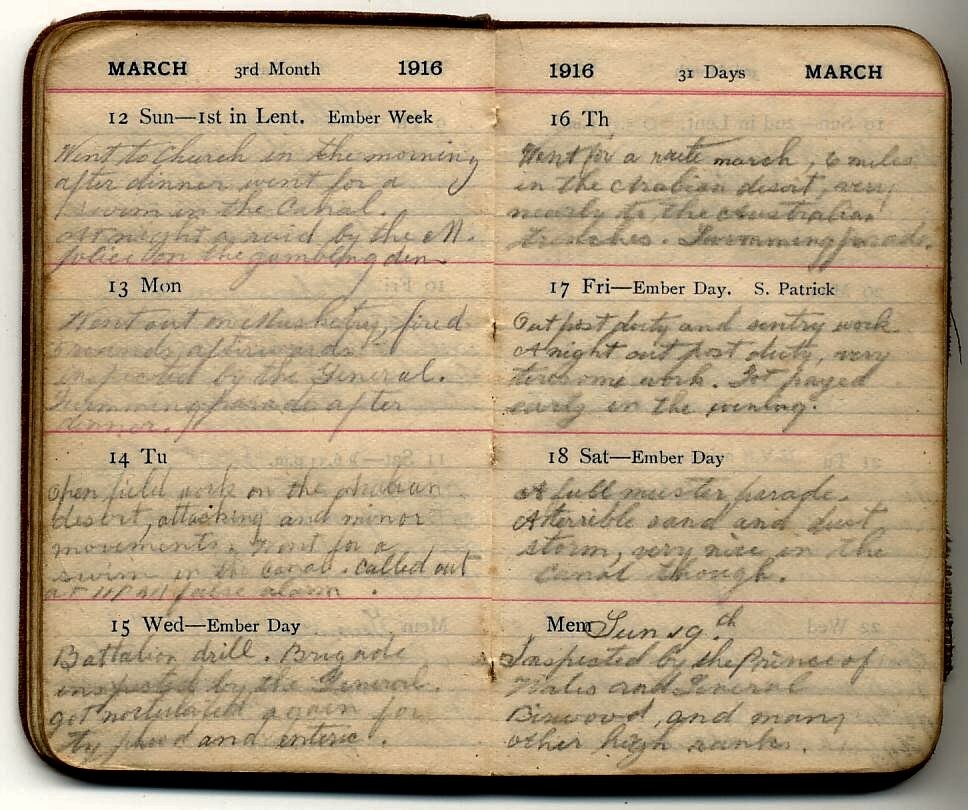 MARCH 3rd Month 1916
12 Sun—1st in Lent. Ember Week
Went to Church in the morning
after dinner went for a
swim in the Canal.
At night a raid by the M.
Police on the gambling den
13 Mon
Went out on Musketry, fired
5 rounds, afterwards
inspected by the General.
Swimming parade after
dinner.
14 Tu
Open field work on the Arabian
desert, attacking and minor
movements. Went for a
swim in the Canal. called out
at 11 false alarm.
15 Wed—Ember Day
Battalion drill. Brigade
inspected by the General.
got noculated again for
Ty phoid and enteric.
1916 31 Days MARCH
16 Th
Went for a route march, 6 miles
in the Arabian desert, very
nearly to the Australian
trenches. Swimming parade.
17 Fri—Ember Day. S. Patrick
Out post duty and sentry work
A night out post duty, very
tiresome work. Got payed
early in the evening.
18 Sat—Ember Day
A full muster parade.
A terrible sand and dust
storm, very nice in the
Canal though.
Mem Sun 19th
Inspected by the Prince of
Wales and General
Birwood, and many
other high ranks.